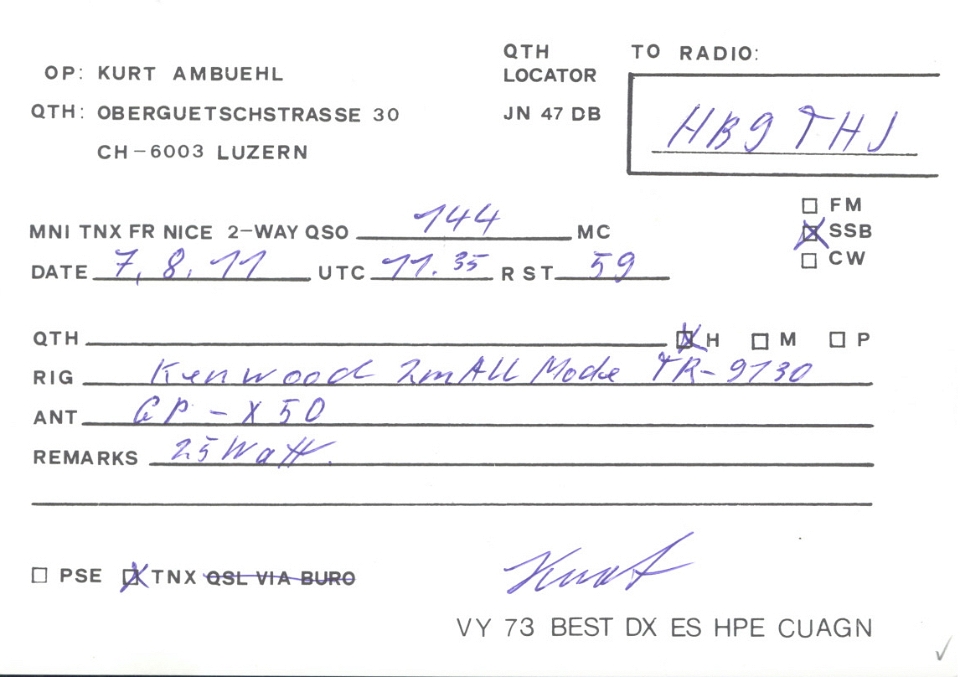 OP: KURT AMBUEHL
QTH: OBERGUETSCHSTRASSE 30
CH-6003 LUZERN
QTH
LOCATOR
JN 47 DB
TO RADIO:
HB9THJ
MNI TNX FR NICE 2-WAY QSO 144 MC
DATE 7.8.11 UTC 11.35 RST 59
FM
SSB
CW
QTH H M P
RIG Kenwood 2m All Mode TR-9130
ANT GP-X50
REMARKS 25 Watt.
PSE TNX QSL VIA BURO
Kurt
VY 73 BEST DX ES HPE CUAGN